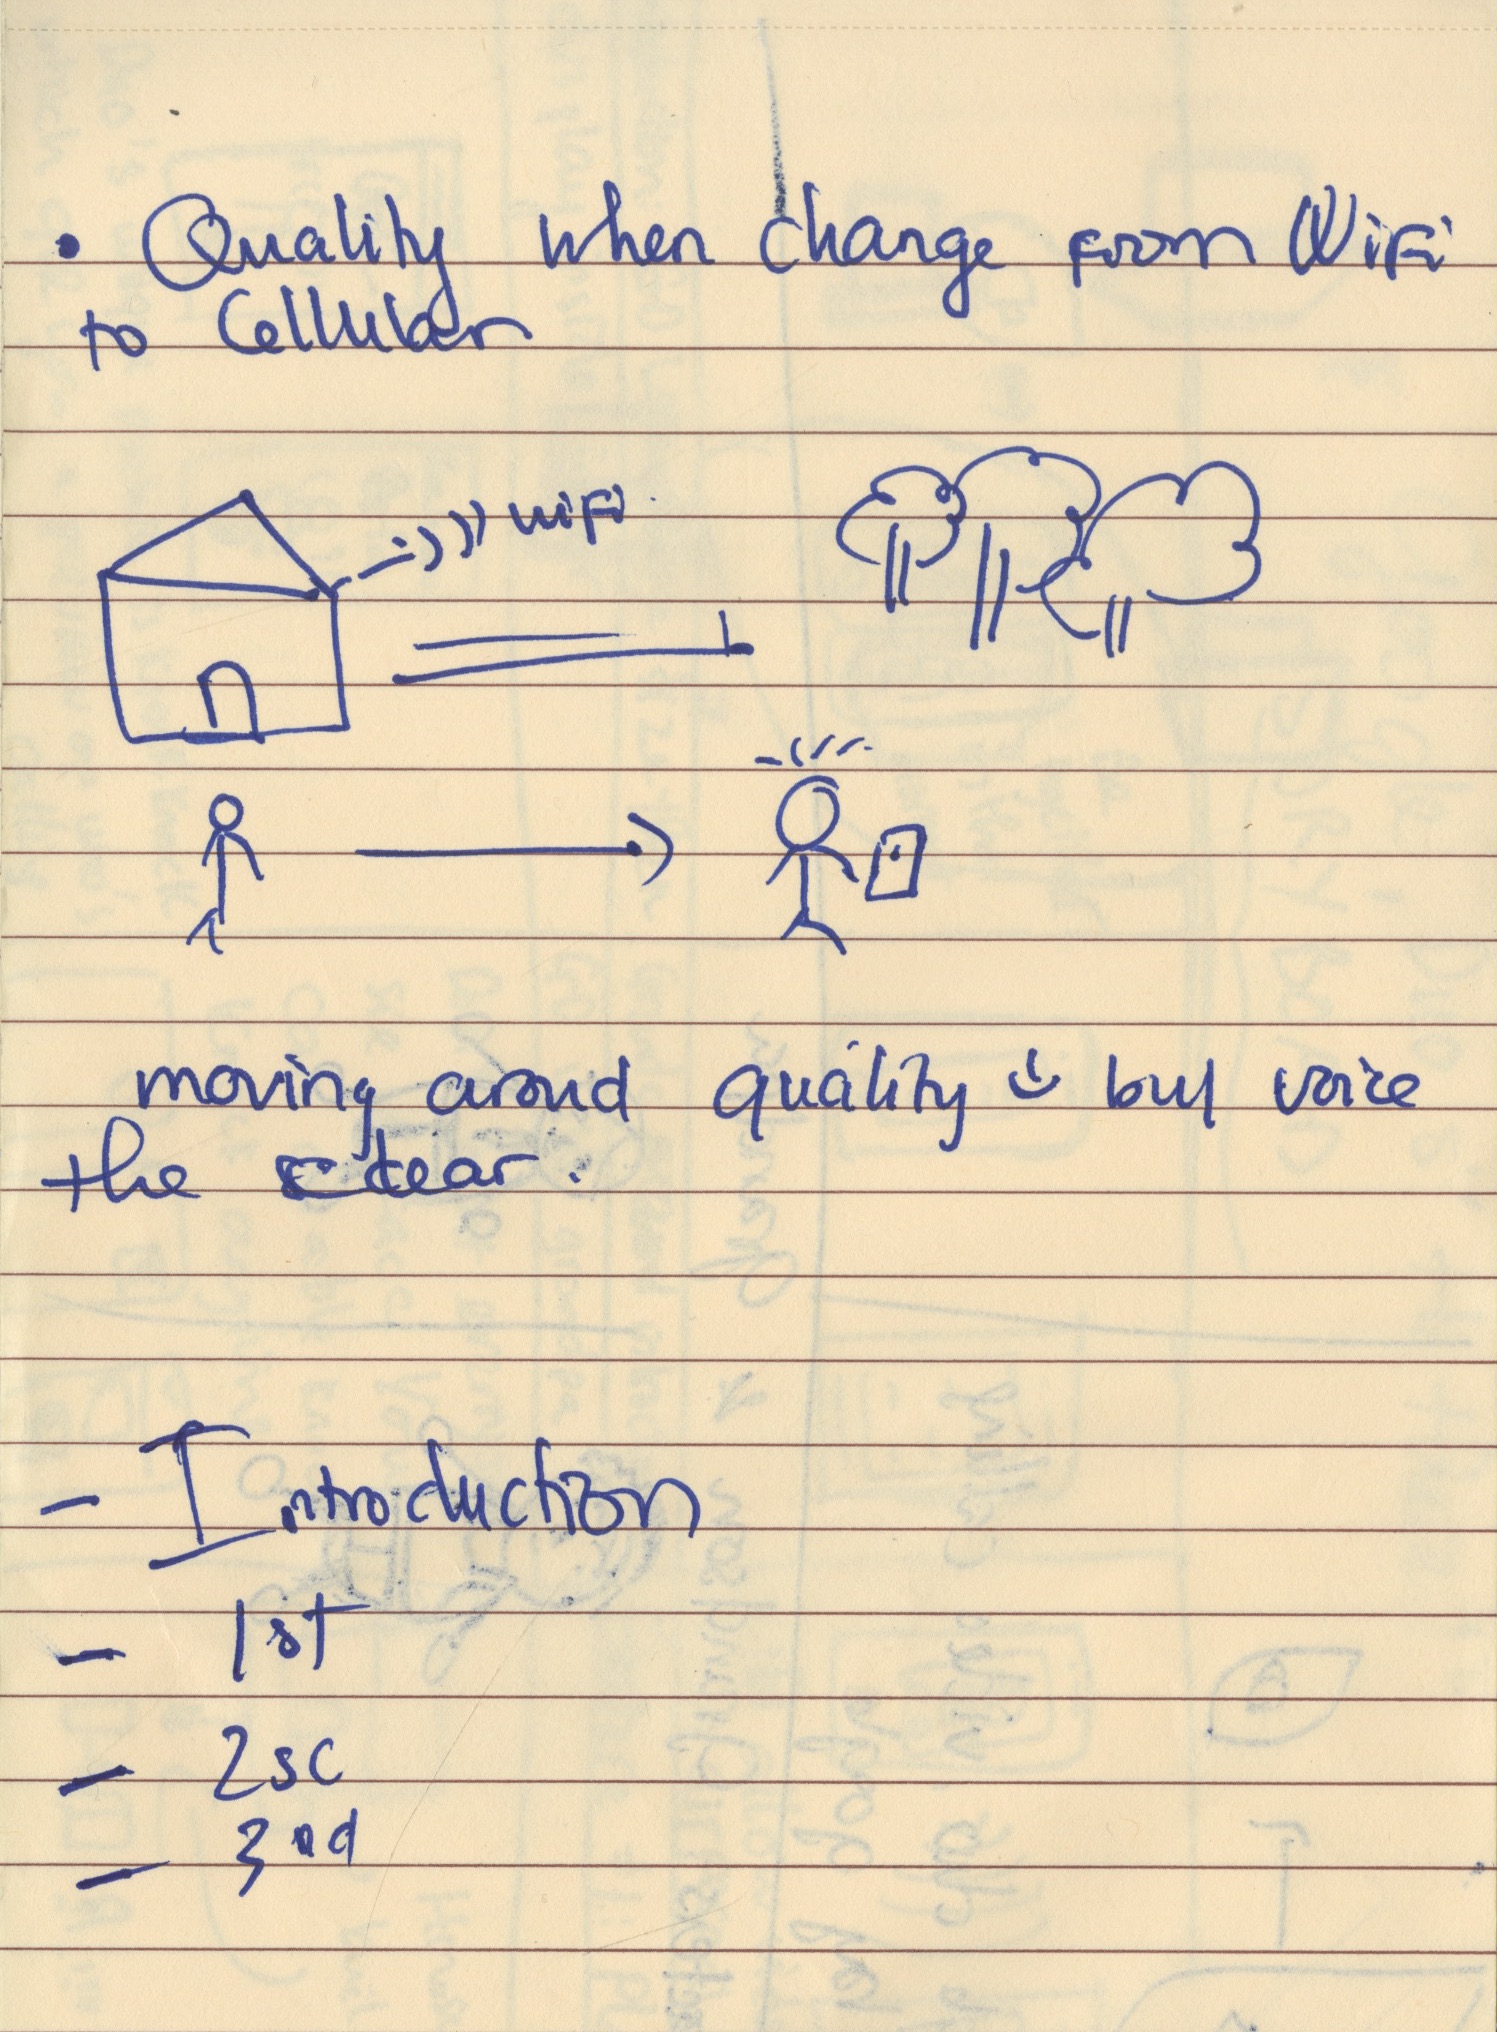 • Quality when change from WiFi
to Cellular
wifi
moving around quality ↓ but voice
the clear.
- Introduction
- 1st
- 2sc
- 3nd